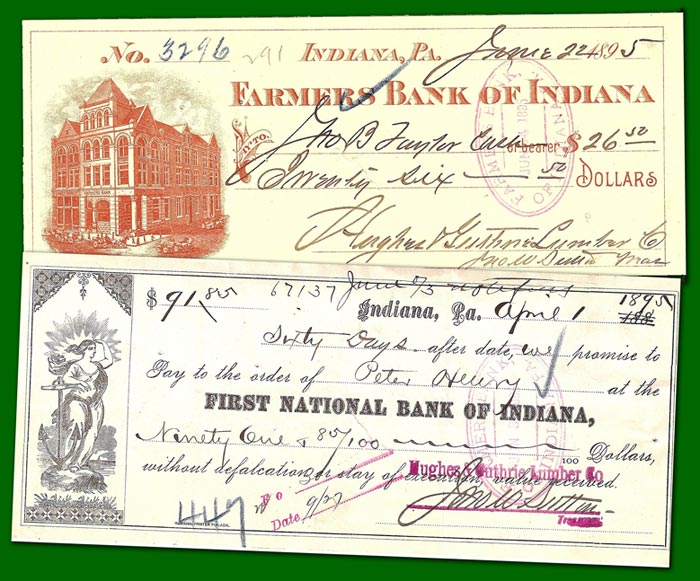 No. 3296 291 INDIANA, PA. June 22 1895
FARMERS BANK OF INDIANA
PAY TO Geo B Taylor Cash or bearer $26 52
Twenty Six 52 DOLLARS
Hughes & Guthrie Lumber Co
Jno W Sutton
FARMERS BANK OF INDIANA
$91.85 67137 June
Indiana, Pa. April 1 1895 188
Sixty Days after date, we promise to
Pay to the order of Peter Henry at the
FIRST NATIONAL BANK OF INDIANA,
Ninety One & 85/100 100 Dollars,
without defalcation or stay of execution, value received.
Hughes & Guthrie Lumber Co
No
Date
Jno W Sutton
Treasurer